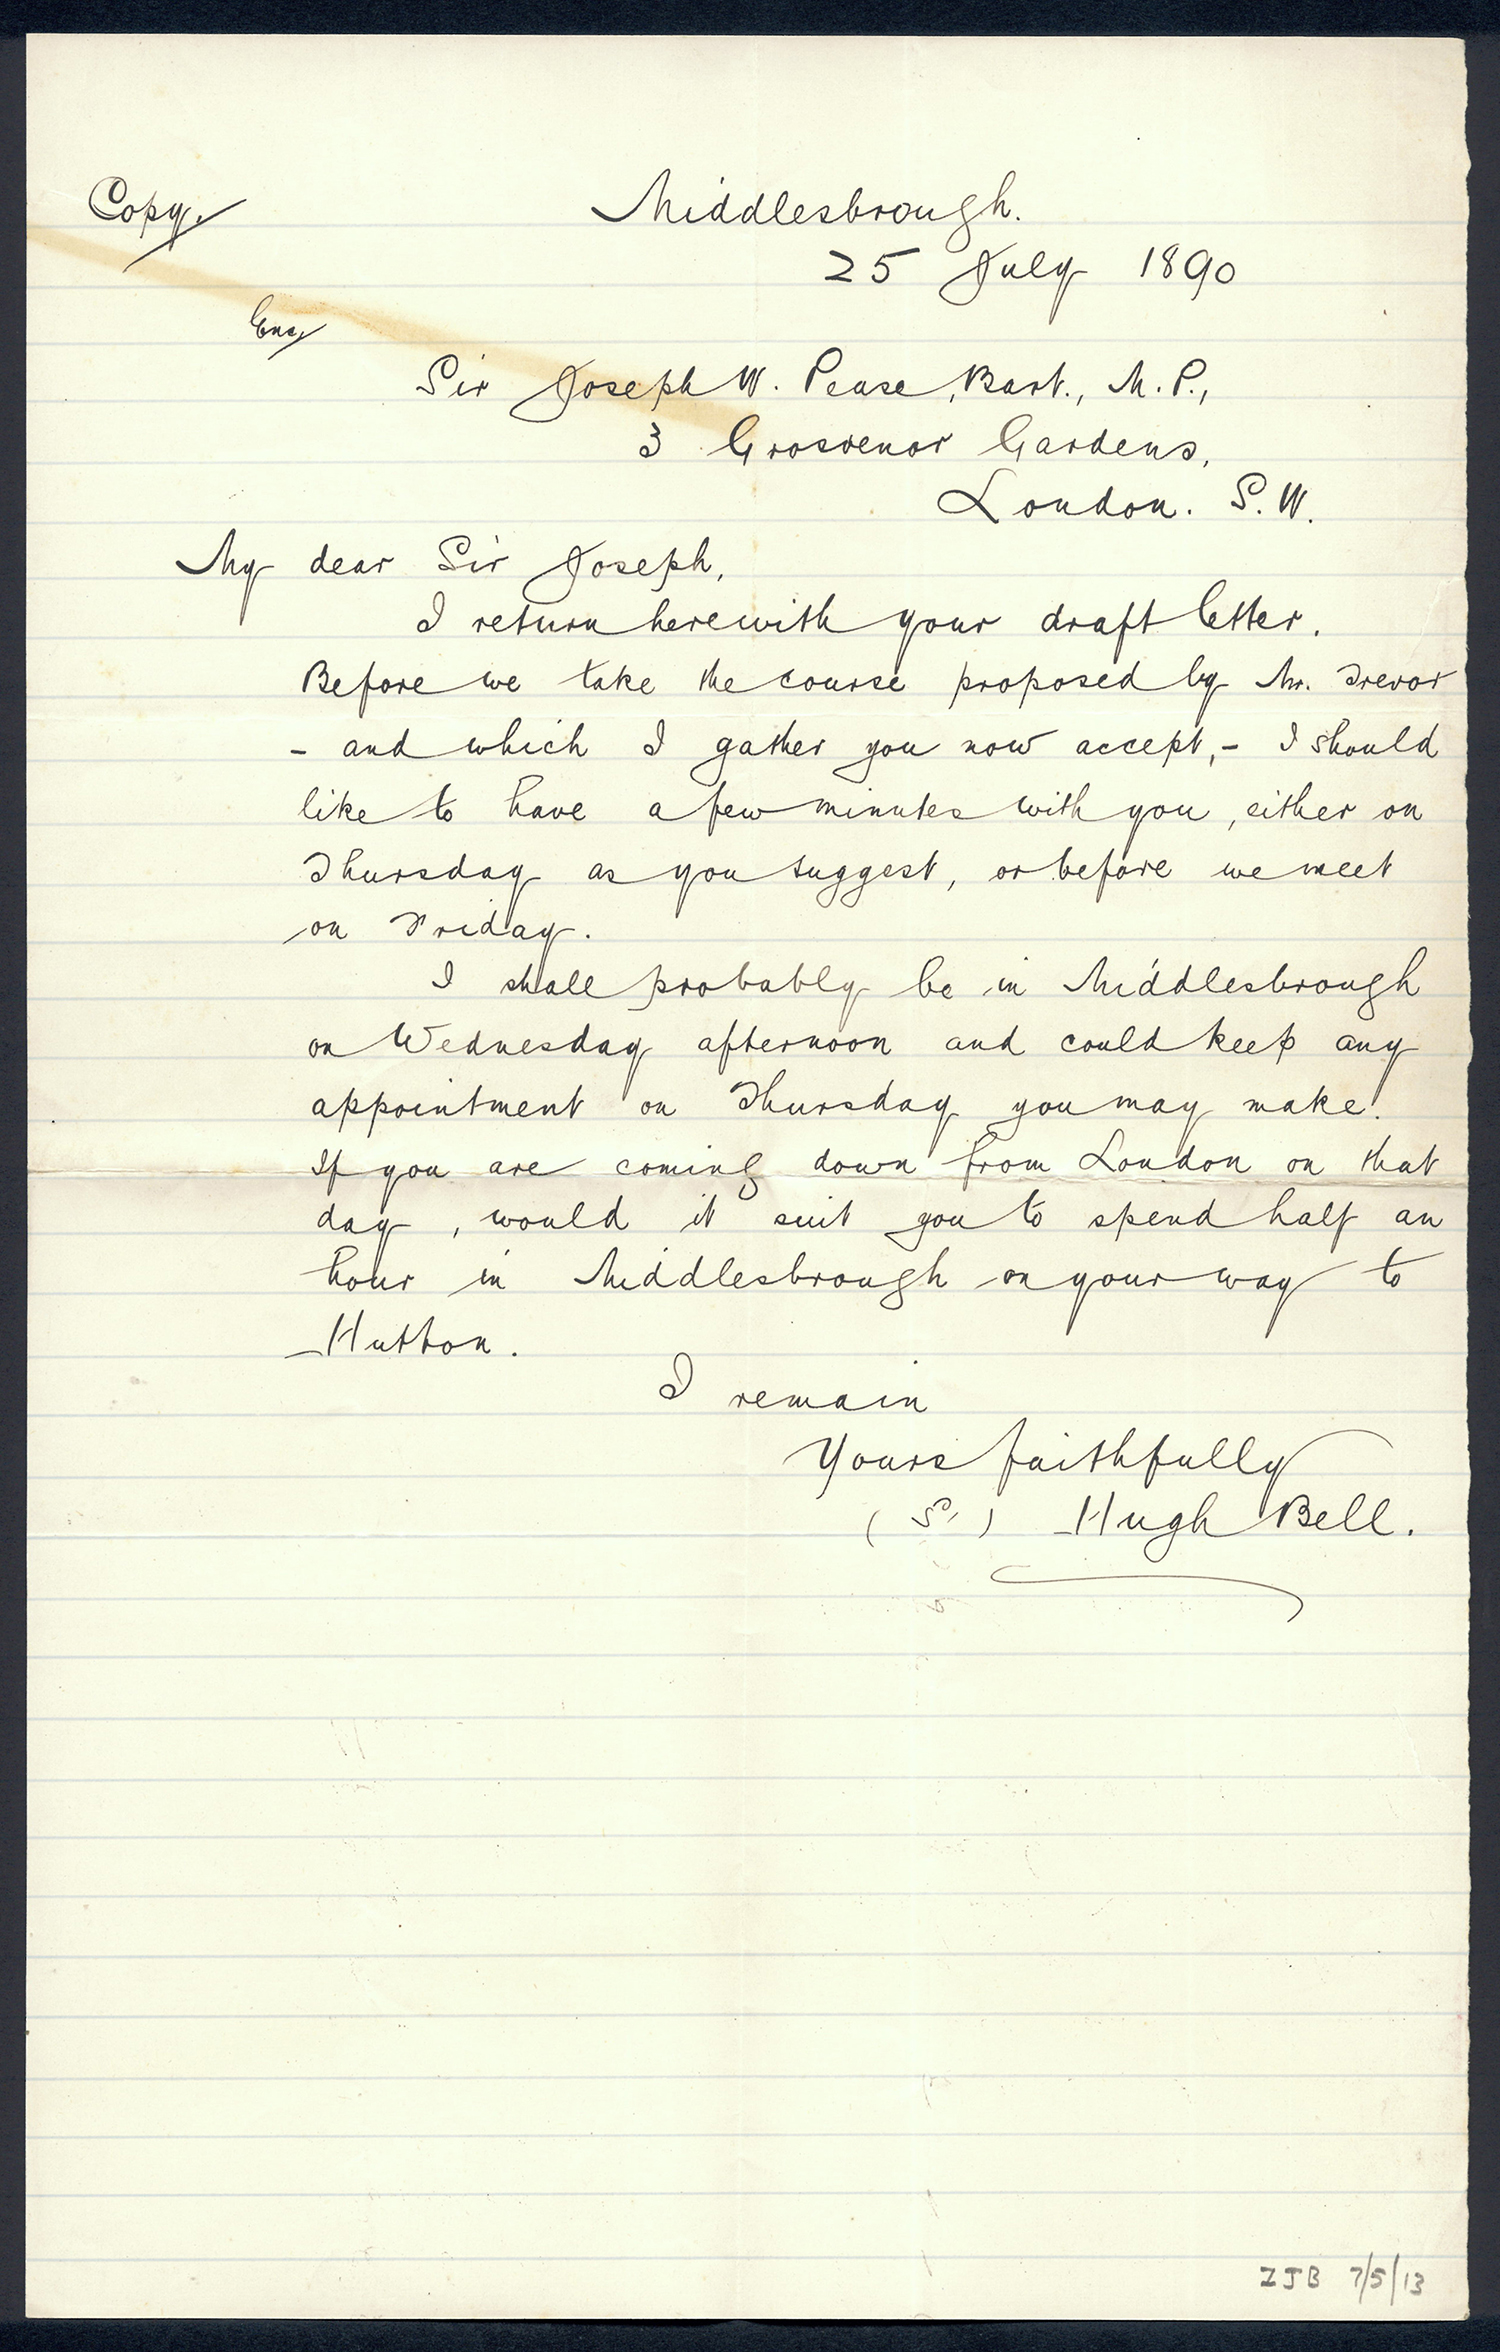 Copy.
Middlesbrough.
25 July 1890
Enc.
Sir Joseph W. Pease, Bart., M.P.,
3 Grosvenor Gardens,
London. S.W.
My dear Sir Joseph,
I return herewith your draft letter.
Before we take the course proposed by Mr. Trevor
- and which I gather you now accept, - I should
like to have a few minutes with you, either on
Thursday as you suggest, or before we meet
on Friday.
I shall probably be in Middlesbrough
on Wednesday afternoon and could keep any
appointment on Thursday you may make.
If you are coming down from London on that
day, would it suit you to spend half an
hour in Middlesbrough on your way to
Hutton.
I remain
Yours faithfully
(S.) Hugh Bell.
ZJB 7/5/13